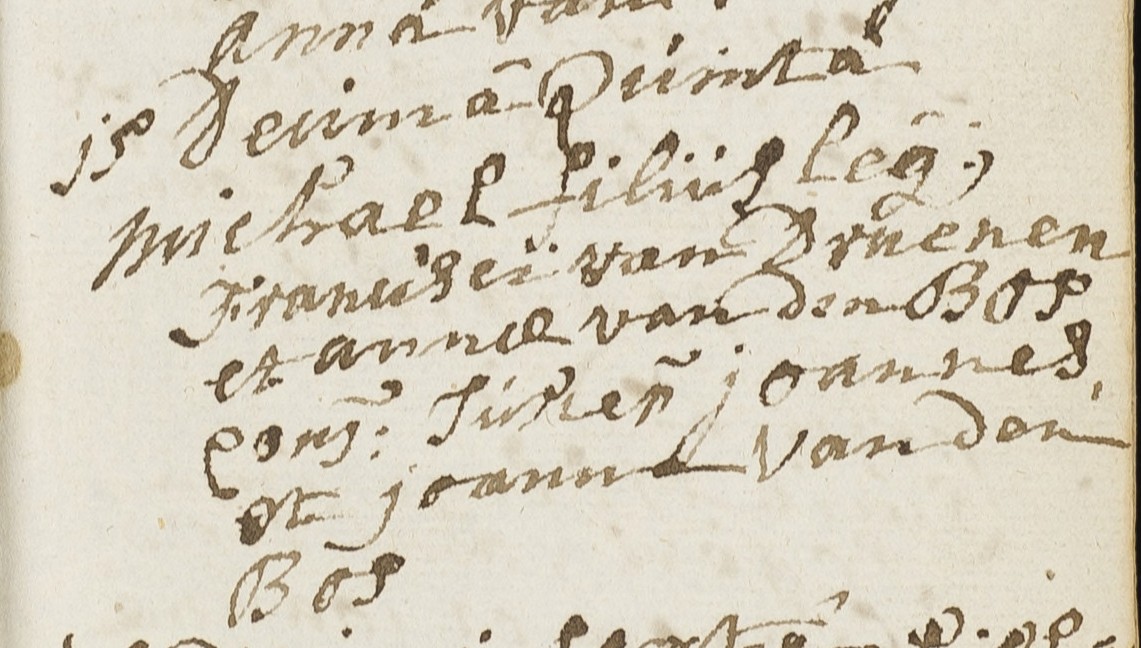 Anna van
15 Decimâ Quintâ
Michael filius leg:
Francisci van Drunen
et annæ van den Bos
Conj: Suscep joannes,
et joanna van den
Bos